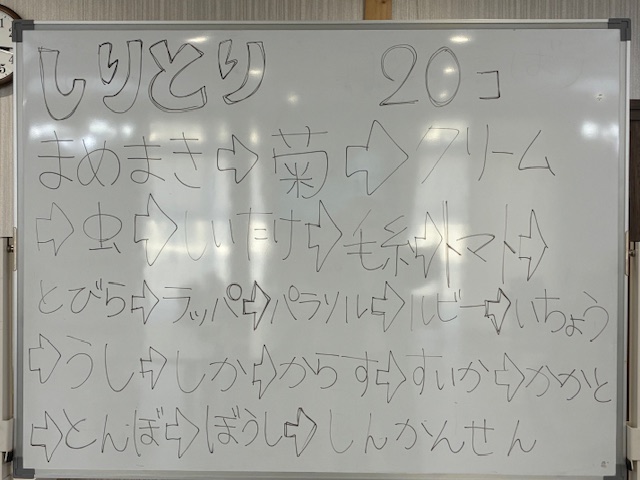 しりとり 20コ
まめまき⇨菊⇨クリーム
⇨虫⇨しいたけ⇨毛糸⇨トマト⇨
とびら⇨ラッパ⇨パラソル⇨ルビー⇨いちょう
⇨うし⇨しか⇨からす⇨すいか⇨かかと
⇨とんぼ⇨ぼうし⇨しんかんせん